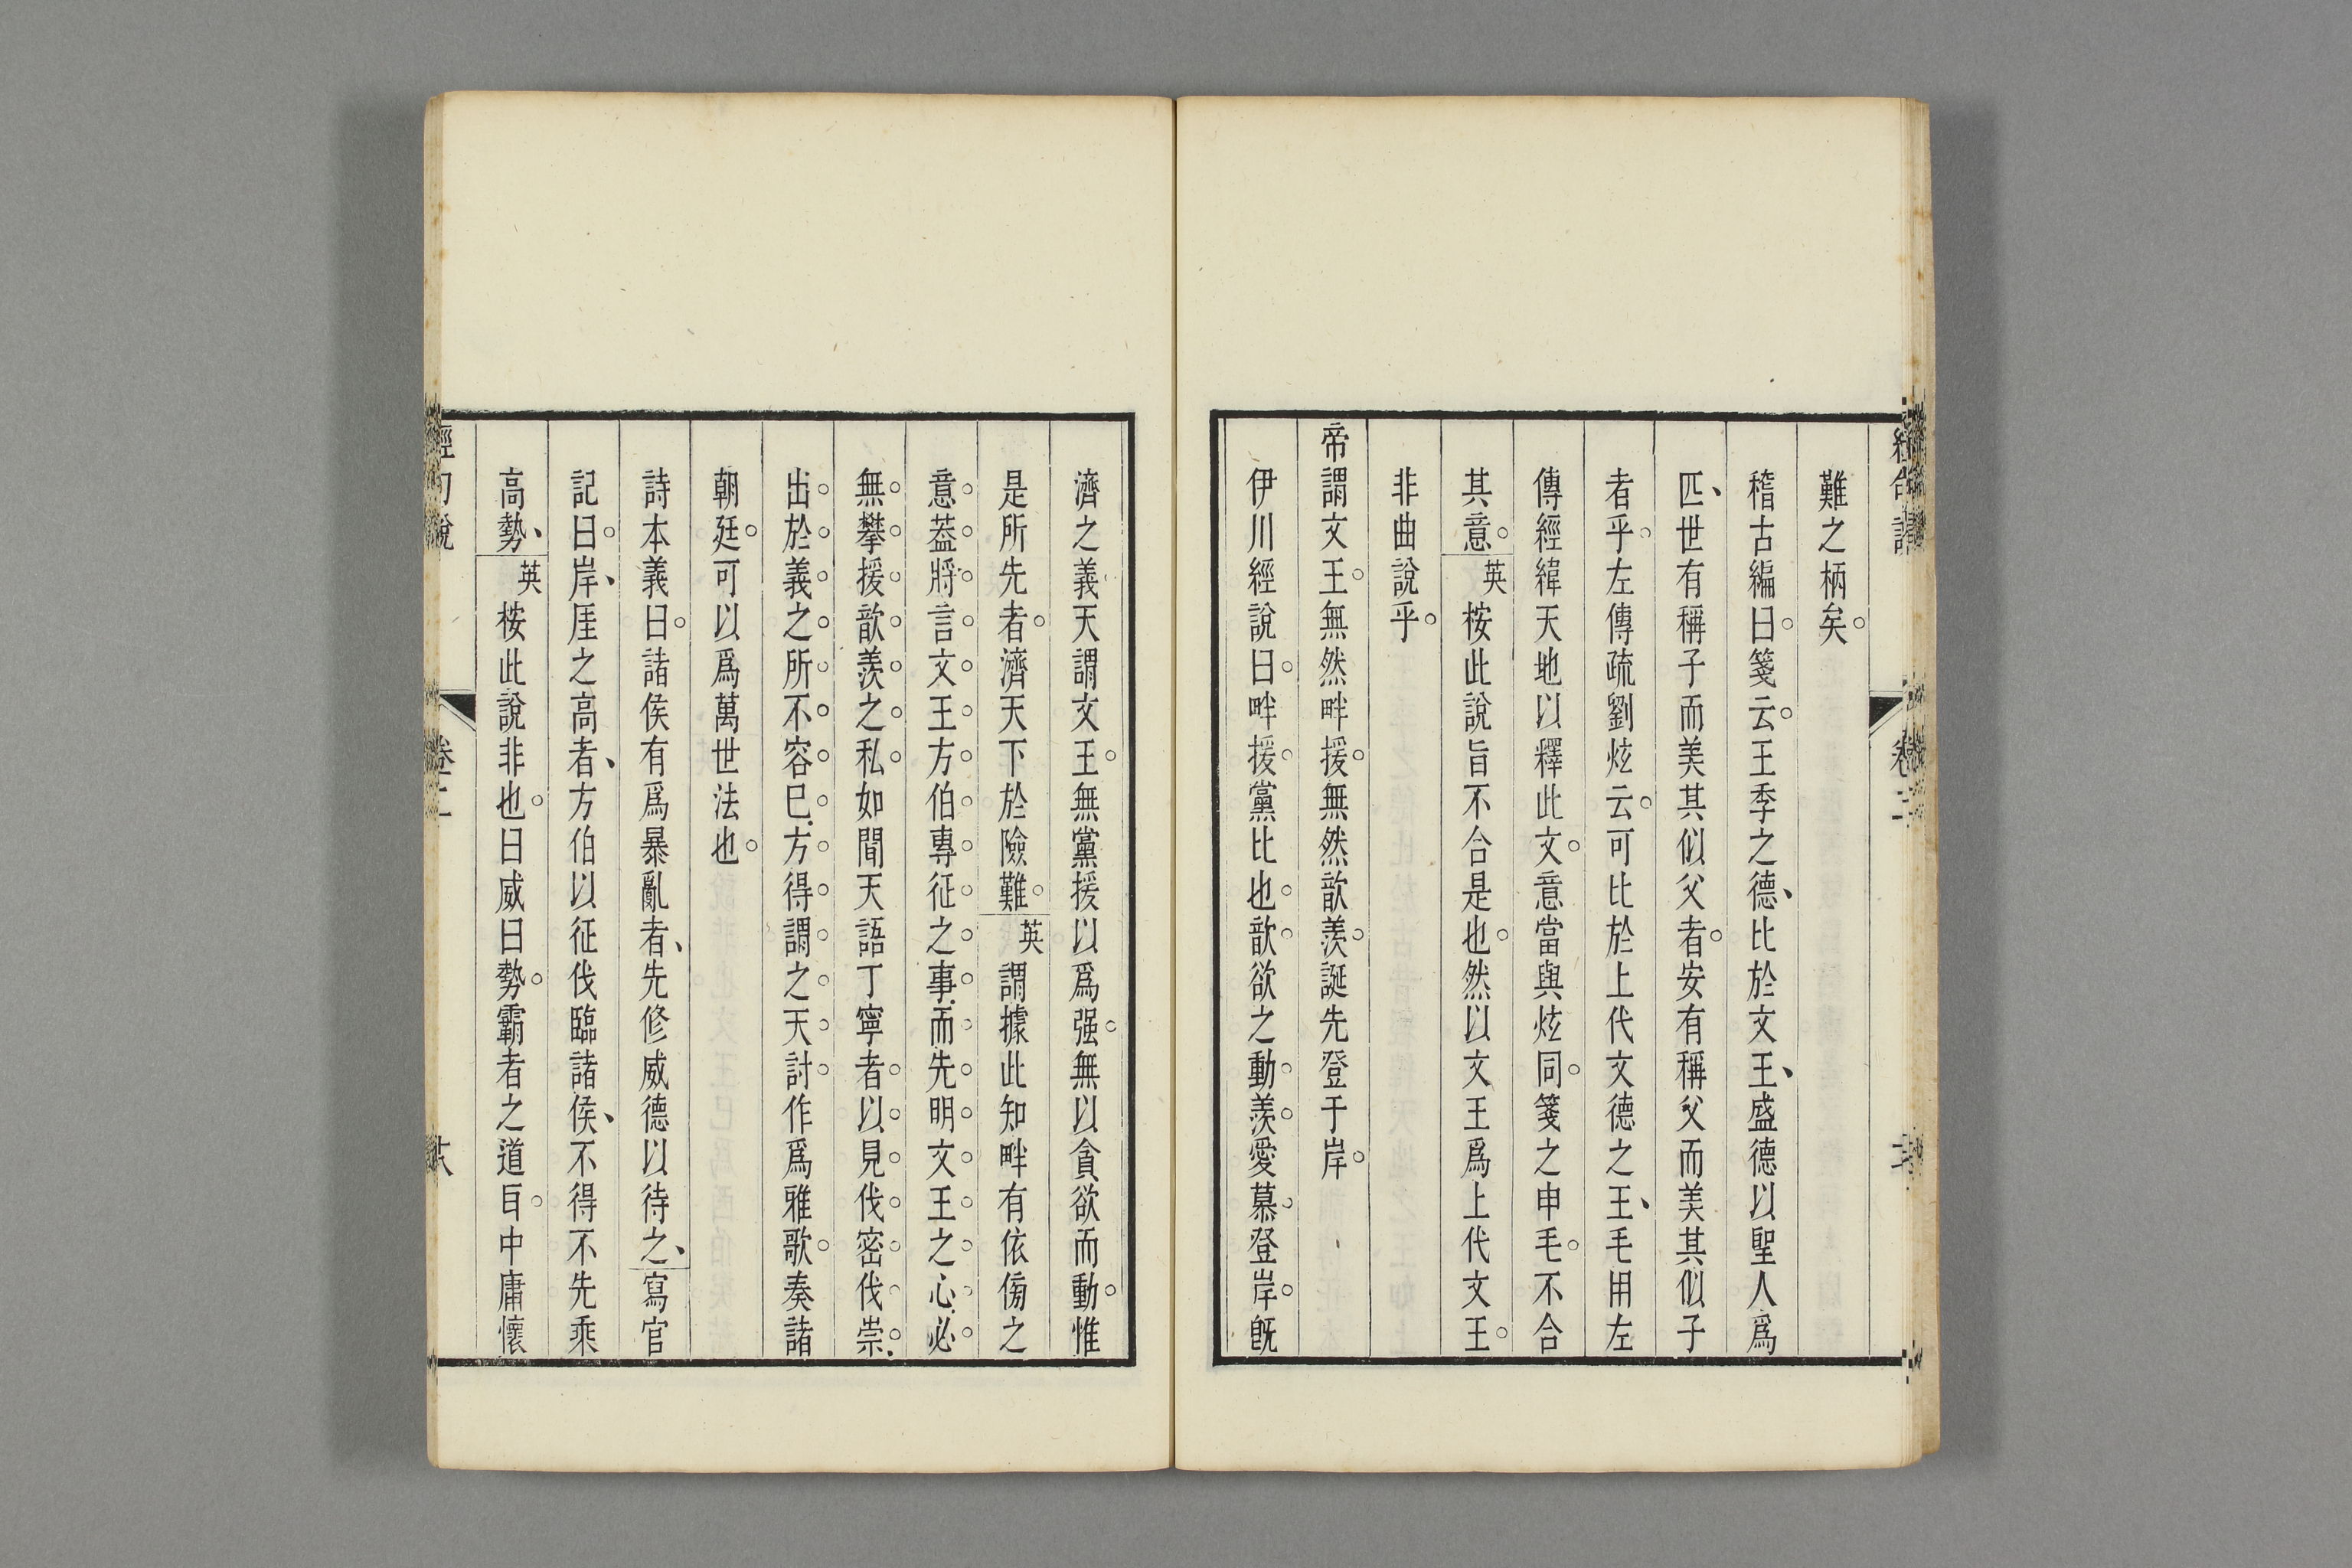 難之柄矣。
稽古編曰。箋云。王季之德、比於文王、盛德以聖人爲
匹、世有稱子而美其似父者。安有稱父而美其似子
者乎。左傳疏劉炫云。可比於上代文德之王、毛用左
傳經緯天地以釋此文。意當與炫同。箋之申毛。不合
其意。英桉此說旨不合是也。然以文王爲上代文王。
非曲說乎。
帝謂文王。無然畔援。無然歆羨。誕先登于岸。
伊川經說曰。畔援。黨比也。歆。欲之動。羨。愛慕。登岸。旣
濟之義天謂文王。無黨援以爲强。無以貪欲而動。惟
是所先者。濟天下於險難。英謂據此知畔有依傍之
意葢將言文王方伯專征之事而先明文王之心必
無攀援歆羨之私如聞天語丁寧者以見伐密伐崇
出於義之所不容已方得謂之天討作爲雅歌。奏諸
朝廷。可以爲萬世法也。
詩本義曰。諸侯有爲暴亂者、先修威德以待之、寫官
記曰。岸、厓之高者、方伯以征伐臨諸侯、不得不先乘
高勢、英桉此說非也。曰威曰勢。霸者之道。且中庸懷
卷二